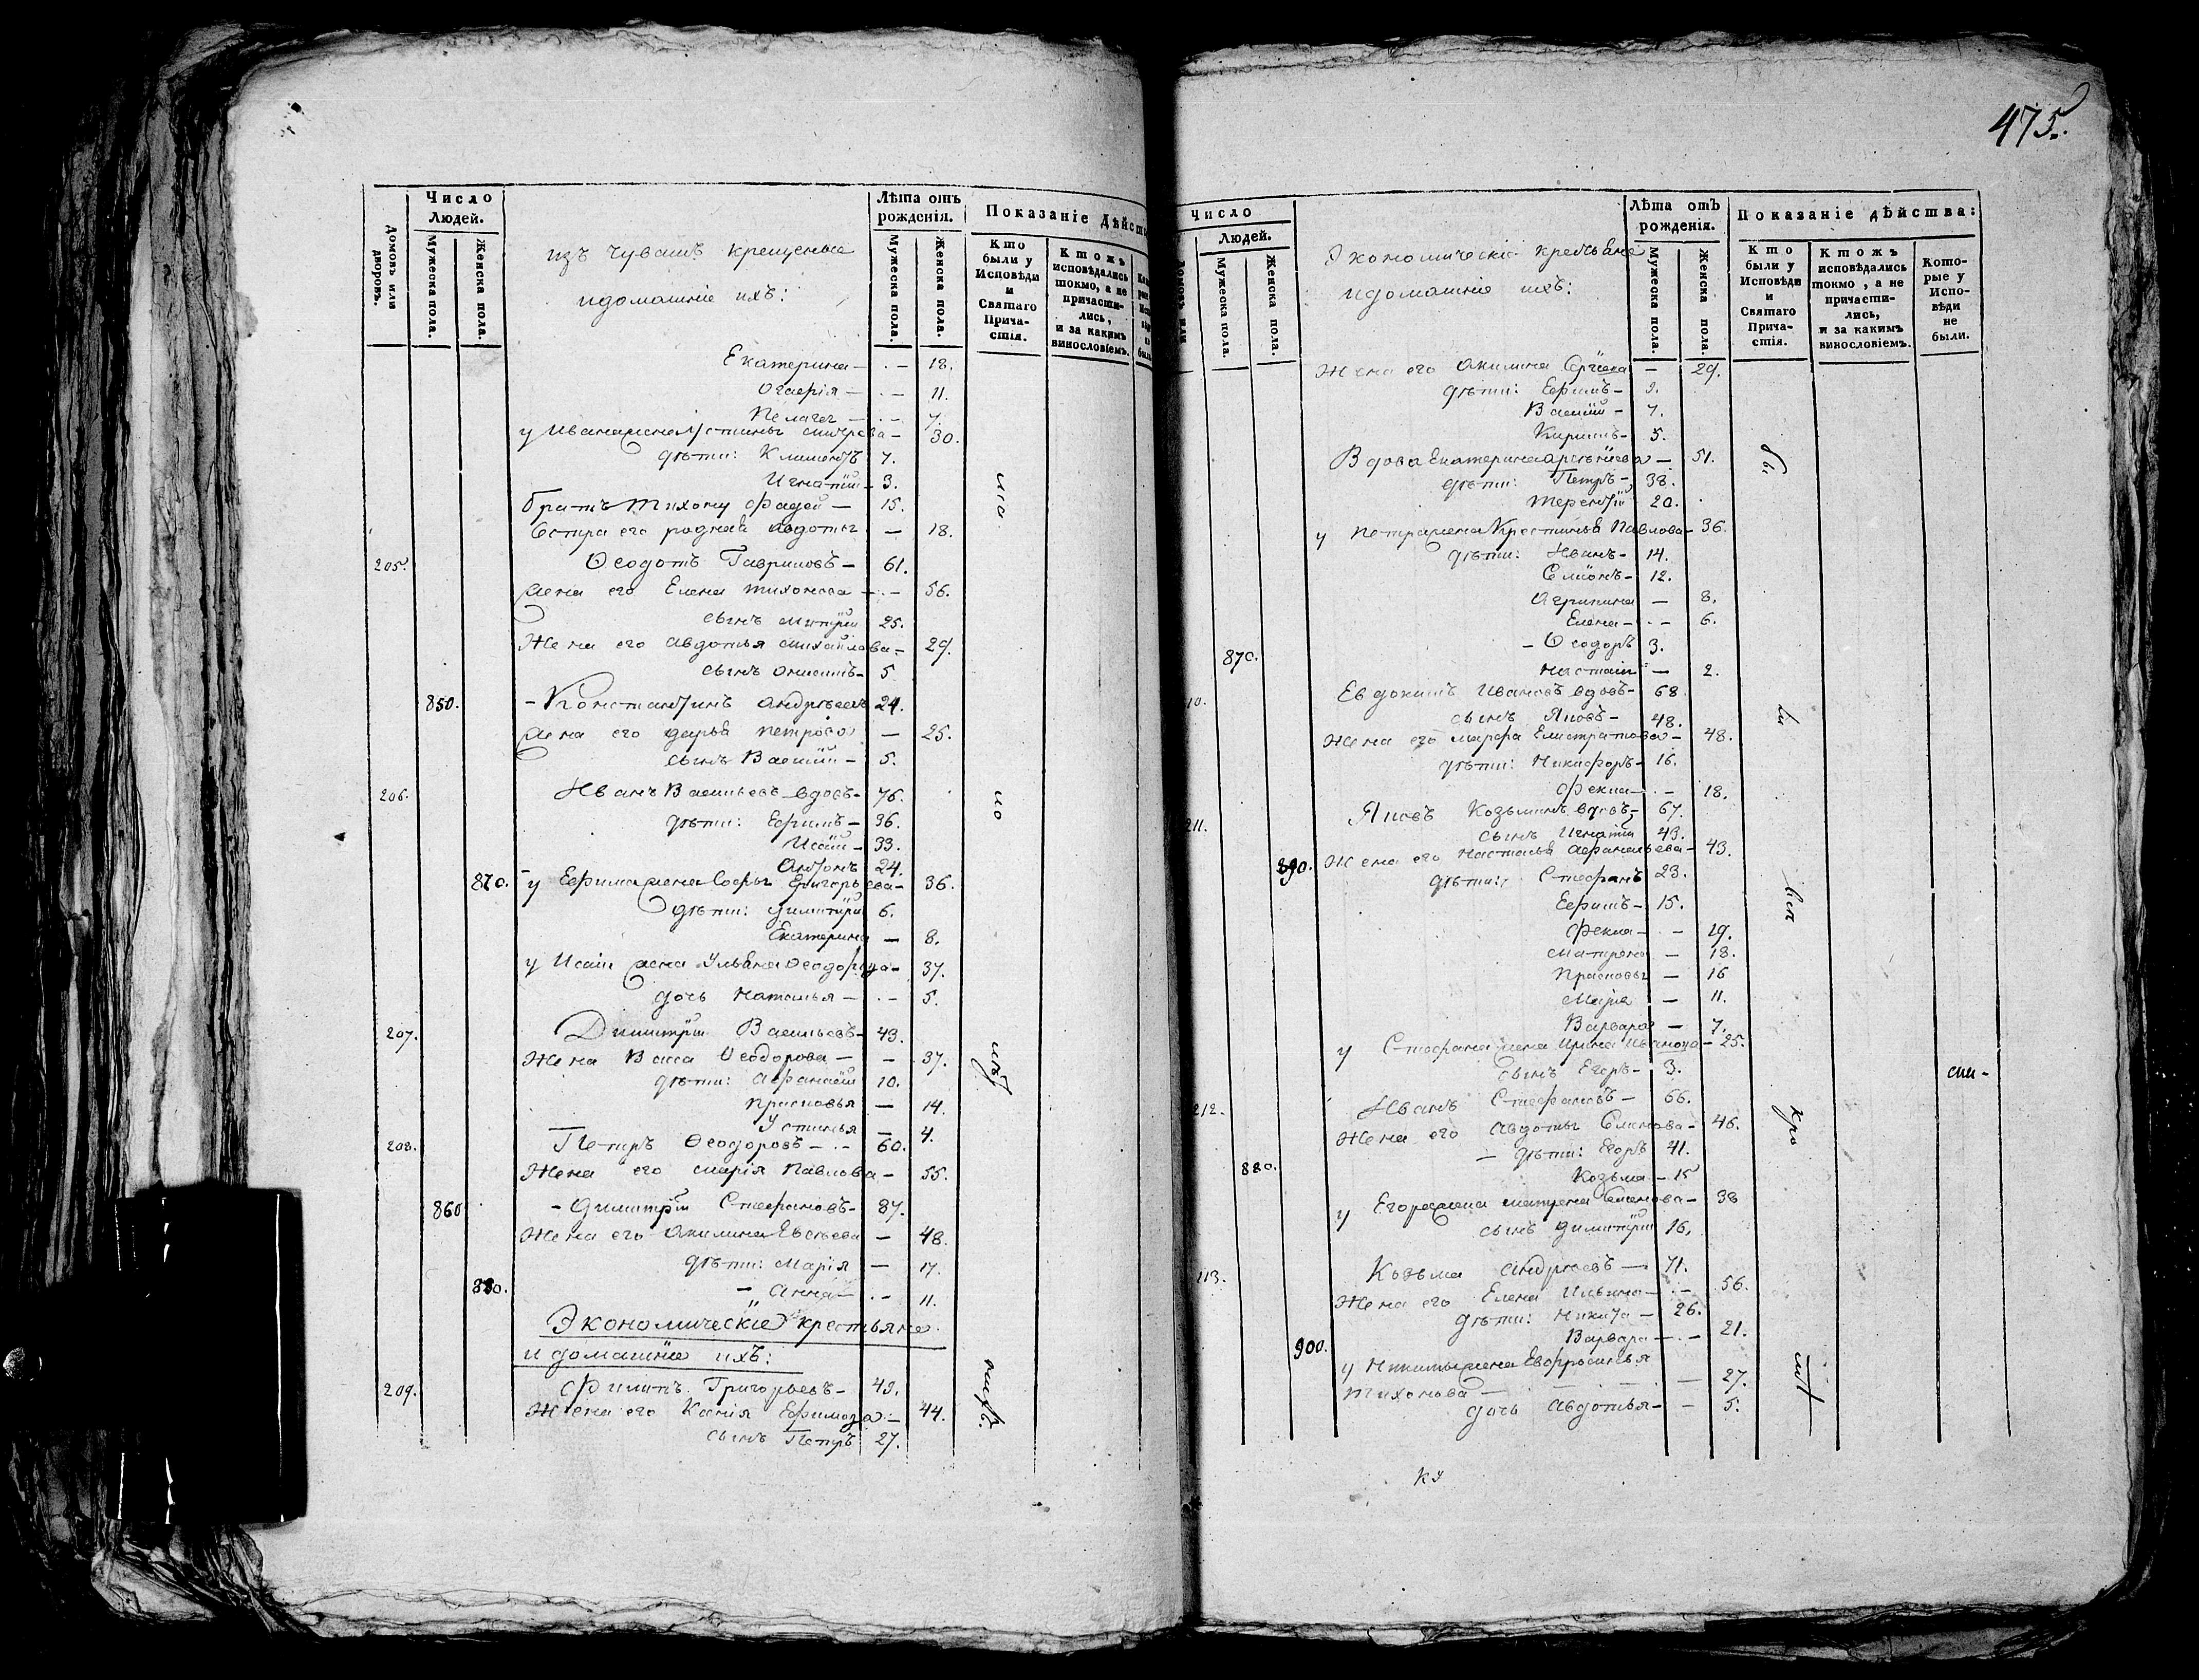 Домовъ или дворовъ.
Число Людей.
Мужеска пола.
Женска пола.
изъ чувашъ крещеные
идомашніе ихъ:
Лѣта отъ рожденія.
Мужеска пола.
Женска пола.
Показаніе Дѣйст
Кто были у Исповѣди и Святаго Прича-стія.
Ктожъ исповѣдались токмо, а не причасти-лись, и за какимъ винословіемъ.
Екатерина — . — 18.
— . — 11.
Пелагея — . — 7.
у Ивана жена Устинья — 30.
дѣти: Климентъ 7.
Игнатій — 3.
братъ Тихону Фадей — 15.
Сестра его родная Авдотья — 18.
205. Ѳеодотъ Гавриловъ — 61.
Жена его Елена Тихонова — . — 56.
сынъ Митрій 25.
Жена его Авдотья Михайлова — 29.
сынъ Онисимъ — 5
850. — Константинъ Андрѣевъ 24.
Жена его Дарья Петрова — 25.
сынъ Василій — 5.
206. Иванъ Васильевъ вдовъ — 76.
дѣти: Ефимъ — 36.
Исай — 33.
Антонъ 24.
870. — у Ефима жена Софья Григорьева — 36.
дѣти: Димитрій 6.
Екатерина — 8.
у Исаіи жена Ульяна Ѳеодорова — 37.
дочь Наталья — . — 5.
207. Димитрій Васильевъ — 43.
Жена Васса Ѳеодорова — — 37.
дѣти: Афанасій 10.
Прасковья — 14.
Устинья — 4.
208. Петръ Ѳеодоровъ — . — 60.
Жена его Марія Павлова — 55.
860 — Димитрій Стефановъ — 87.
Жена его Акилина Евсѣева — 48.
дѣти: Марія — 17.
880. — Анна — . — 11.
Экономическіе крестьяне
и домашніе ихъ:
209. Филипъ Григорьевъ — 49.
Жена его Ксенія Ефимова — 44.
сынъ Петръ 27.
475.
Число Людей.
Мужеска пола.
Женска пола.
Экономическіе крестьяне
идомашніе ихъ:
Лѣта отъ рожденія.
Мужеска пола.
Женска пола.
Показаніе дѣйства:
Кто были у Исповѣди и Святаго Прича-стія.
Ктожъ исповѣдались токмо, а не причасти-лись, и за какимъ винословіемъ.
Кото-рые у Испо-вѣди не были.
Жена его Акилина Сергіева — 29.
дѣти: Ефимъ — 9.
Василій — 7.
Кирилъ — 5.
Вдова Екатерина Арсеньева — 51.
дѣти: Петръ — 38.
Терентій 20.
у Петра жена Крестинья Павлова — 36.
дѣти: Иванъ — 14.
Семіонъ — 12.
Агрипина — 8.
Елена — . — 6.
— Ѳеодоръ 3.
870. Настасія — 2.
10. Евдокимъ Ивановъ вдовъ — 68
сынъ Яковъ — 48.
Жена его Марфа Елистратова — 48.
дѣти: Никифоръ — 16.
Фекла — . — 18.
211. Яковъ Козьминъ вдовъ — 67.
сынъ Игнатій 43.
890. Жена его Настасья Афанасьева — 43.
дѣти: Стефанъ 23.
Ефимъ — 15.
Фекла — — 19.
Матрена — 18.
Прасковья — 16
Марѳа — 11.
Варвара — 7.
у Стефана жена Ирина Иванова — 25.
сынъ Егоръ — 3.
212. Иванъ Стефановъ — 66.
Жена его Авдотья Семенова — 46.
— дѣти: Егоръ 41.
880. Козьма — 15
у Егора жена Матрена Семенова — 38
сынъ Димитрій 16.
113. Козьма Андрѣевъ — 71.
Жена его Елена Ильина — . — 56.
дѣти: Никита — 26.
900. Варвара — . — 21.
у Никиты жена Евфросинья
Тихонова — — — — 27.
дочь Авдотья — — 5.